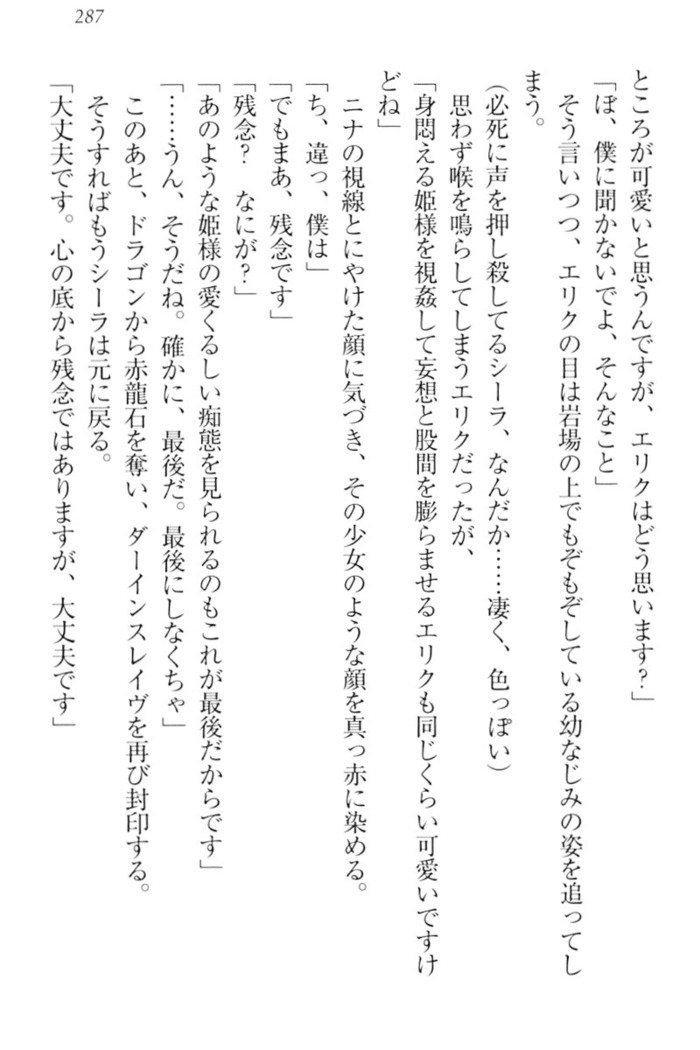 287
ところが可愛いと思うんですが、エリクはどう思います?」
「ぼ、僕に聞かないでよ、そんなこと」
そう言いつつ、エリクの目は岩場の上でもぞもぞしている幼なじみの姿を追ってし
まう。
(必死に声を押し殺してるシーラ、なんだか……凄く、色っぽい)
思わず喉を鳴らしてしまうエリクだったが、
「身悶える姫様を視姦して妄想と股間を膨らませるエリクも同じくらい可愛いですけ
どね」
ニナの視線とにやけた顔に気づき、その少女のような顔を真っ赤に染める。
「ち、違っ、僕は」
「でもまあ、残念です」
「残念? なにが?」
「あのような姫様の愛くるしい痴態を見られるのもこれが最後だからです」
「……うん、そうだね。確かに、最後だ。最後にしなくちゃ」
このあと、ドラゴンから赤龍石を奪い、ダーインスレイヴを再び封印する。
そうすればもうシーラは元に戻る。
「大丈夫です。心の底から残念ではありますが、大丈夫です」